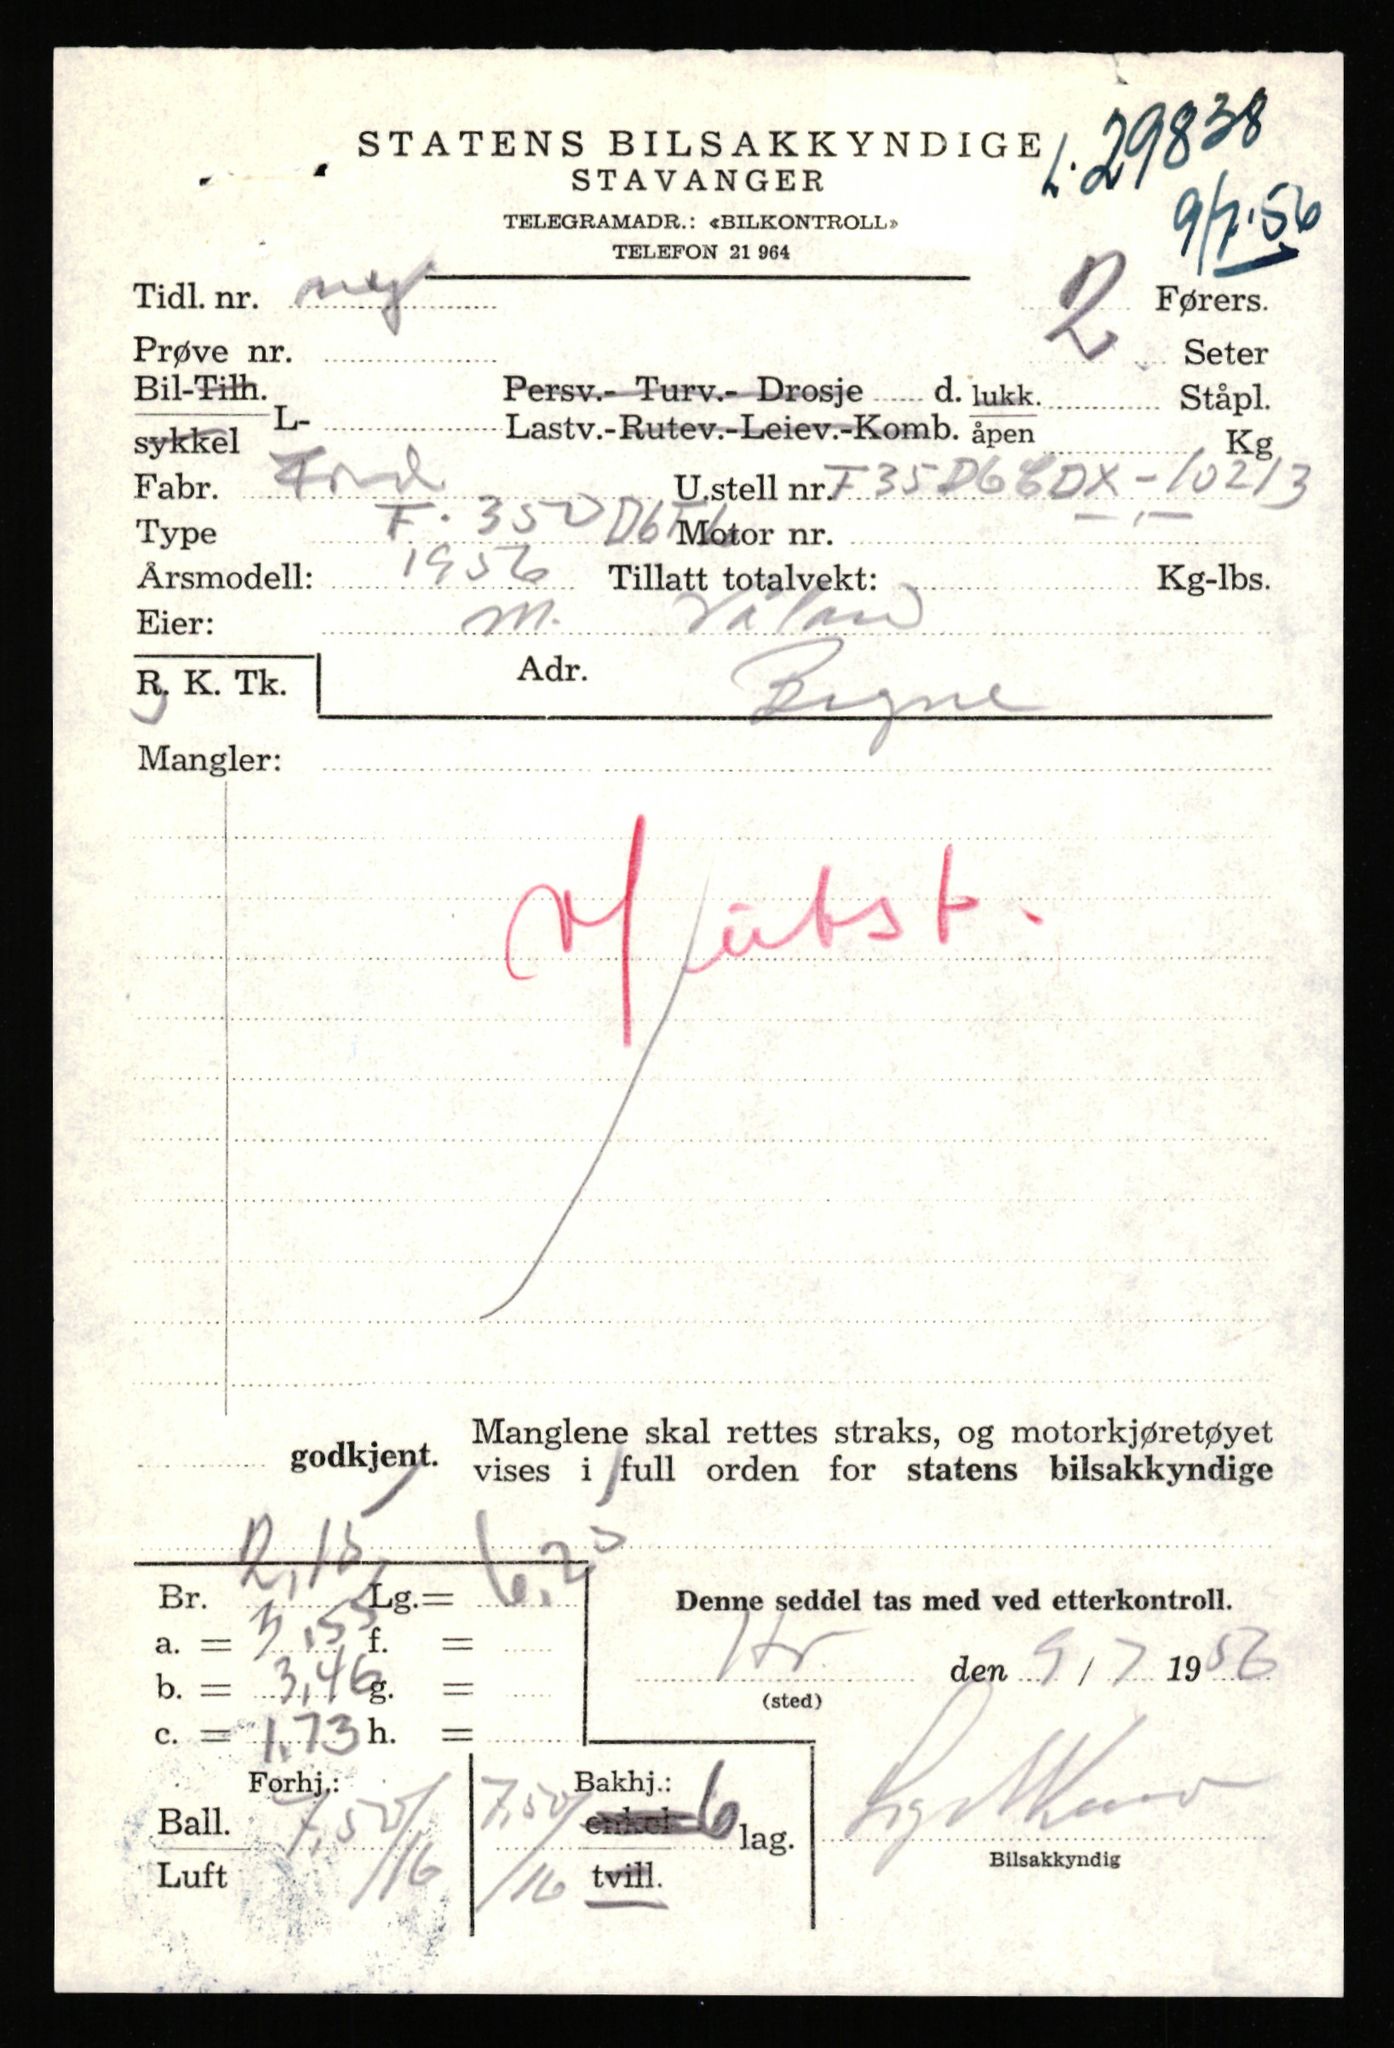 STATENS BILSAKKYNDIGE
STAVANGER
TELEGRAMADR.: «BILKONTROLL»
TELEFON 21 964
L. 29838
9/7.56
Tidl. nr. ny
2 Førers.
Prøve nr.
Seter
Bil-Tilh. Persv.- Turv.- Drosje d. lukk. Ståpl.
sykkel L- Lastv.-Rutev.-Leiev.-Komb. åpen Kg
Fabr. Ford U.stell nr. F35D6 DX-10213
Type F. 350 Motor nr.
Årsmodell: 1956 Tillatt totalvekt: Kg-lbs.
Eier: M. Våland
R. K. Tk. Adr. Bryne
Mangler:
godkjent. Manglene skal rettes straks, og motorkjøretøyet
vises i full orden for statens bilsakkyndige
Br. 2,15 Lg.= 6,20
a. = 3,55 f. =
b. = 3,46 g. =
c. = 1,73 h. =
Denne seddel tas med ved etterkontroll.
den 9/7 1956
(sted)
Forhj.: Bakhj.:
Ball. 7,50/16 7,50/16 enkel 6 lag.
Luft tvill.
Bilsakkyndig